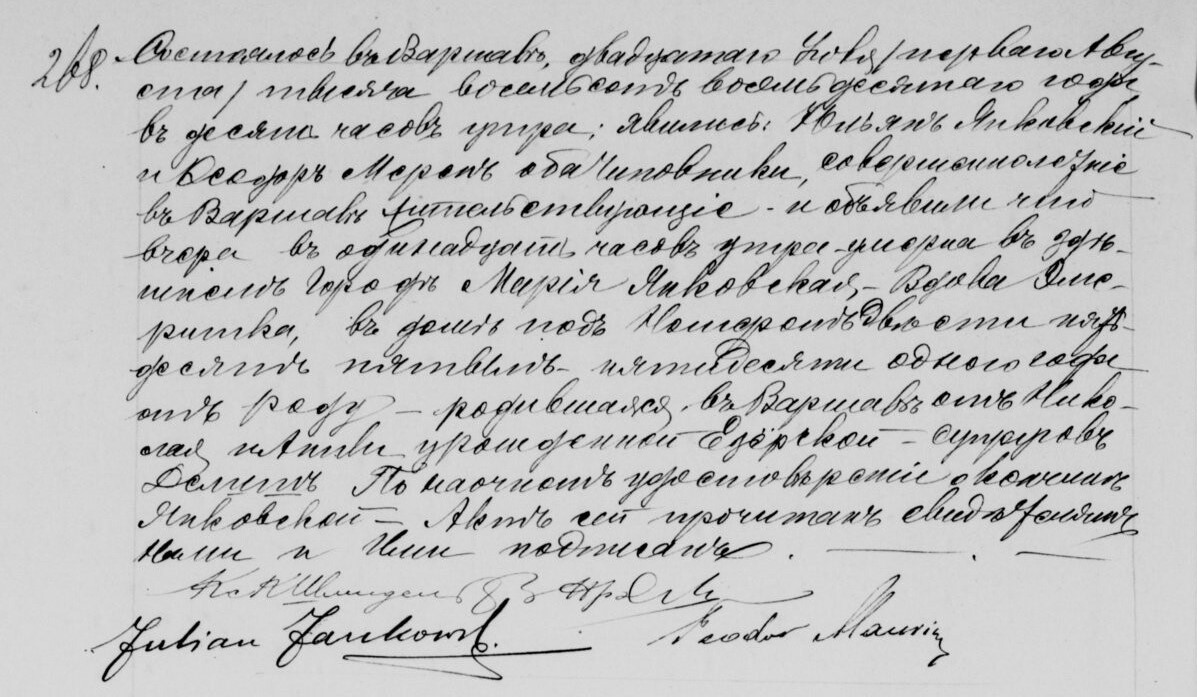 268. Состоялось въ Варшавѣ, двадцатаго Іюля/перваго Авгу-
ста/ тысяча восемьсотъ восемьдесятаго года
въ десять часовъ утра; явились: Юльянъ Янковскій
и Ѳеодоръ оба чиновники, совершеннолѣтніе
въ Варшавѣ жительствующіе - и объявили что
вчера въ одинадцать часовъ утра умерла въ здѣ-
шнемъ городѣ Марія Янковская, - Вдова Эме-
ритка, въ домѣ подъ Номеромъ двѣсти пять-
десятъ пятымъ - пятидесяти одного года
отъ роду - родившаяся въ Варшавѣ отъ Нико-
лая и Анны урожденной Езёрской - супруговъ
По наочномъ удостовѣреніи о кончинѣ
Янковской - Актъ сей прочитанъ свидѣтелямъ
Нами и Ими подписанъ.
Julian Jankowsk.
Teodor